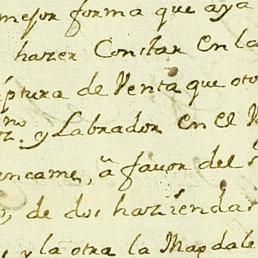 mejor forma que aya
hazer Constar en la
ptura de Venta que oto
y Labrador en el
encame, a favor del
de dos haziendas
y la otra la Magdale